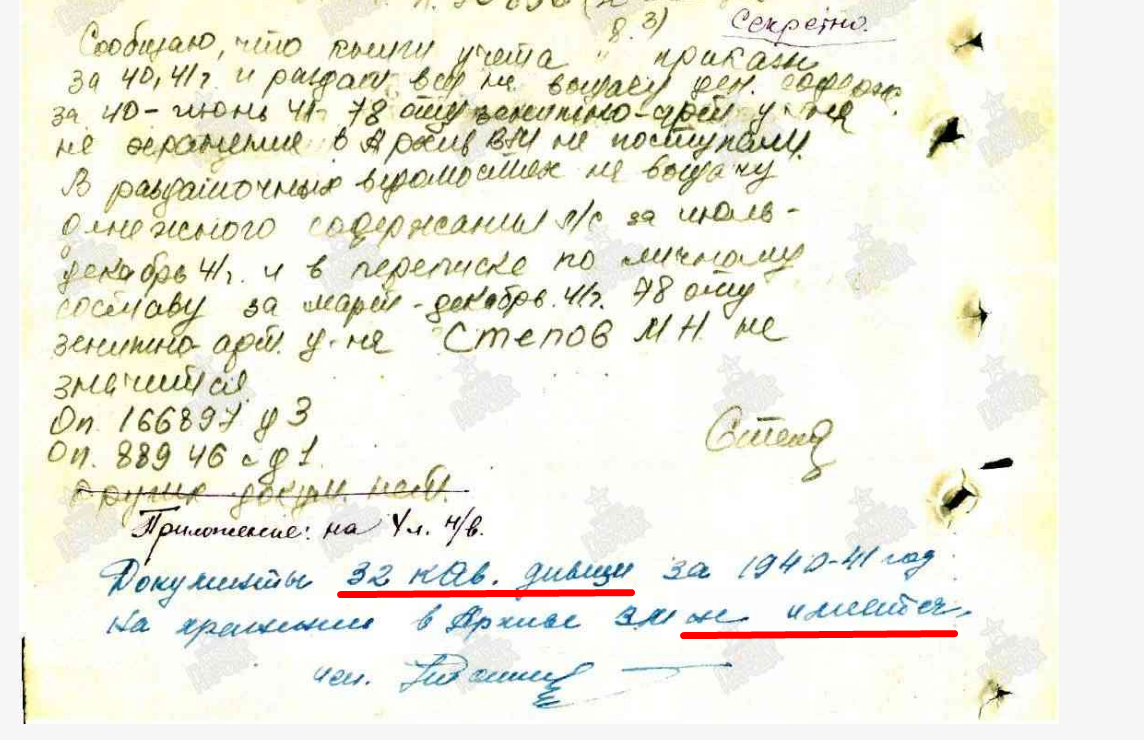 8.3)
Секретно.
Сообщаю, что книги учета и приказы
за 40, 41г и раздат. вед на выдачу ден. содерж.
за 40 - июнь 41г 78 отд зенитно-арт д-на
на хранение в Архив ВМ не поступали.
В раздаточных ведомостях на выдачу
денежного содержания л/с за июль -
декабрь 41г. и в переписке по личному
составу за март - декабрь 41г. 78 отд
зенитно арт. д-на Степов М Н не
значится
Оп. 166897 д 3
Оп. 88946 с д 1
других докум. нет.
Приложение: на 4 л. н/в.
Документы 32 кав. дивизии за 1940-41 год
На хранении в Архиве не имеется.
исп.